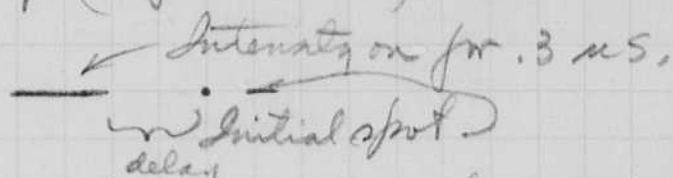 Intensity on for .3 us.
Initial spot
delay